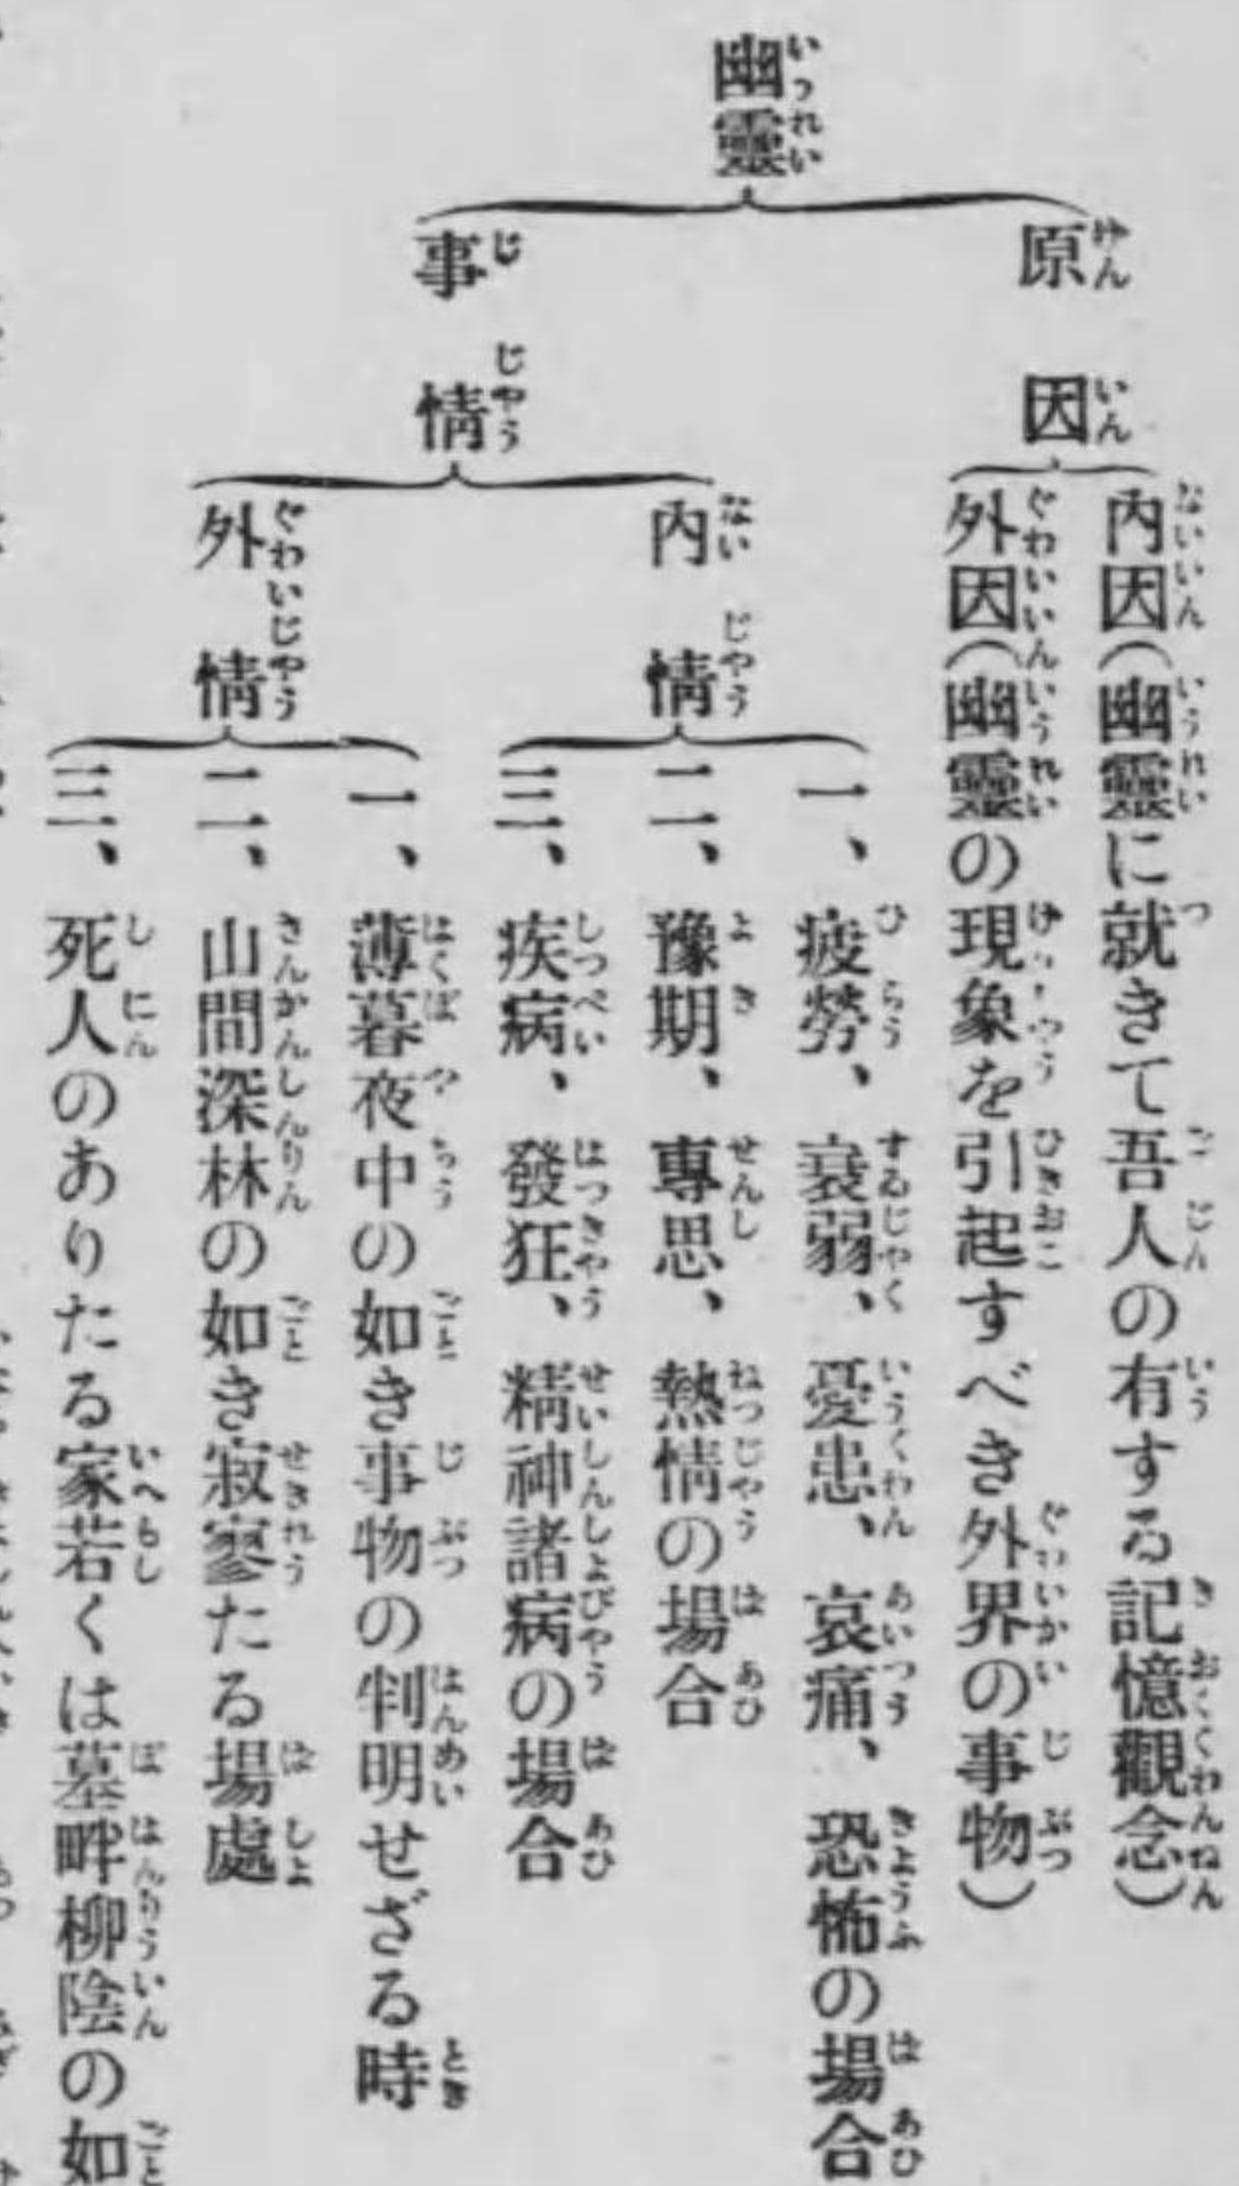 幽靈
原因
内因(幽靈に就きて吾人の有する記憶觀念)
外因(幽靈の現象を引起すべき外界の事物)
事情
内情
一、疲勞、衰弱、憂患、哀痛、恐怖の場合
二、豫期、專思、熱情の場合
三、疾病、發狂、精神諸病の場合
外情
一、薄暮夜中の如き事物の判明せざる時
二、山間深林の如き寂寥たる場處
三、死人のありたる家若くは墓畔柳陰の如